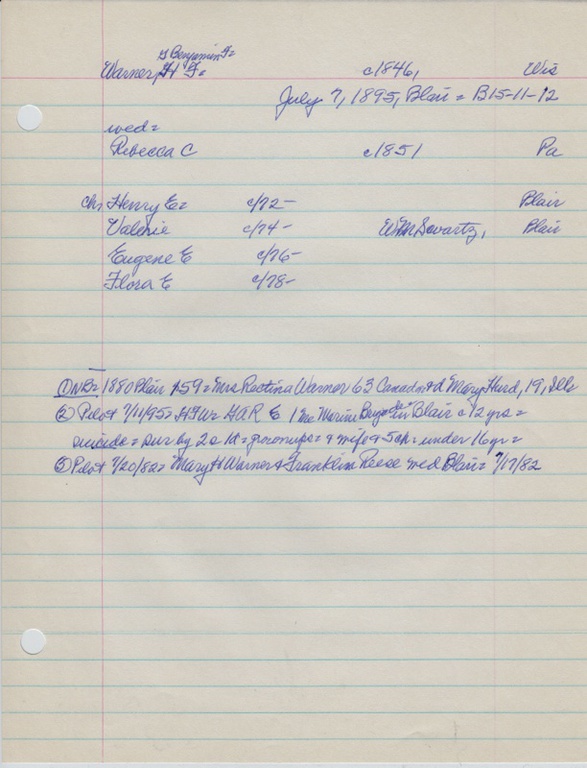 G Benjamin F=
Warner, H F= c1846, Wis
July 7, 1895, Blair = B15-11-12
wed=
Rebecca C c1851 Pa
chn Henry E= c/72- Blair
Valerie c/74- Wm Swartz, Blair
Eugene E c/76-
Flora E c/78-
① NB= 1880 Blair #59= Mrs Rectina Warner 63 Canada + d Mary Hurd, 19, Ills
② Pilot 7/11/95= H F W= GAR & 1 Me Marine in Blair c 12 yrs=
suicide= sur by 2s 1d= grownups= & wife & 5 ch= under 16 yr=
③ Pilot 7/20/82= Mary H Warner & Franklin Reese wed Blair= 7/17/82